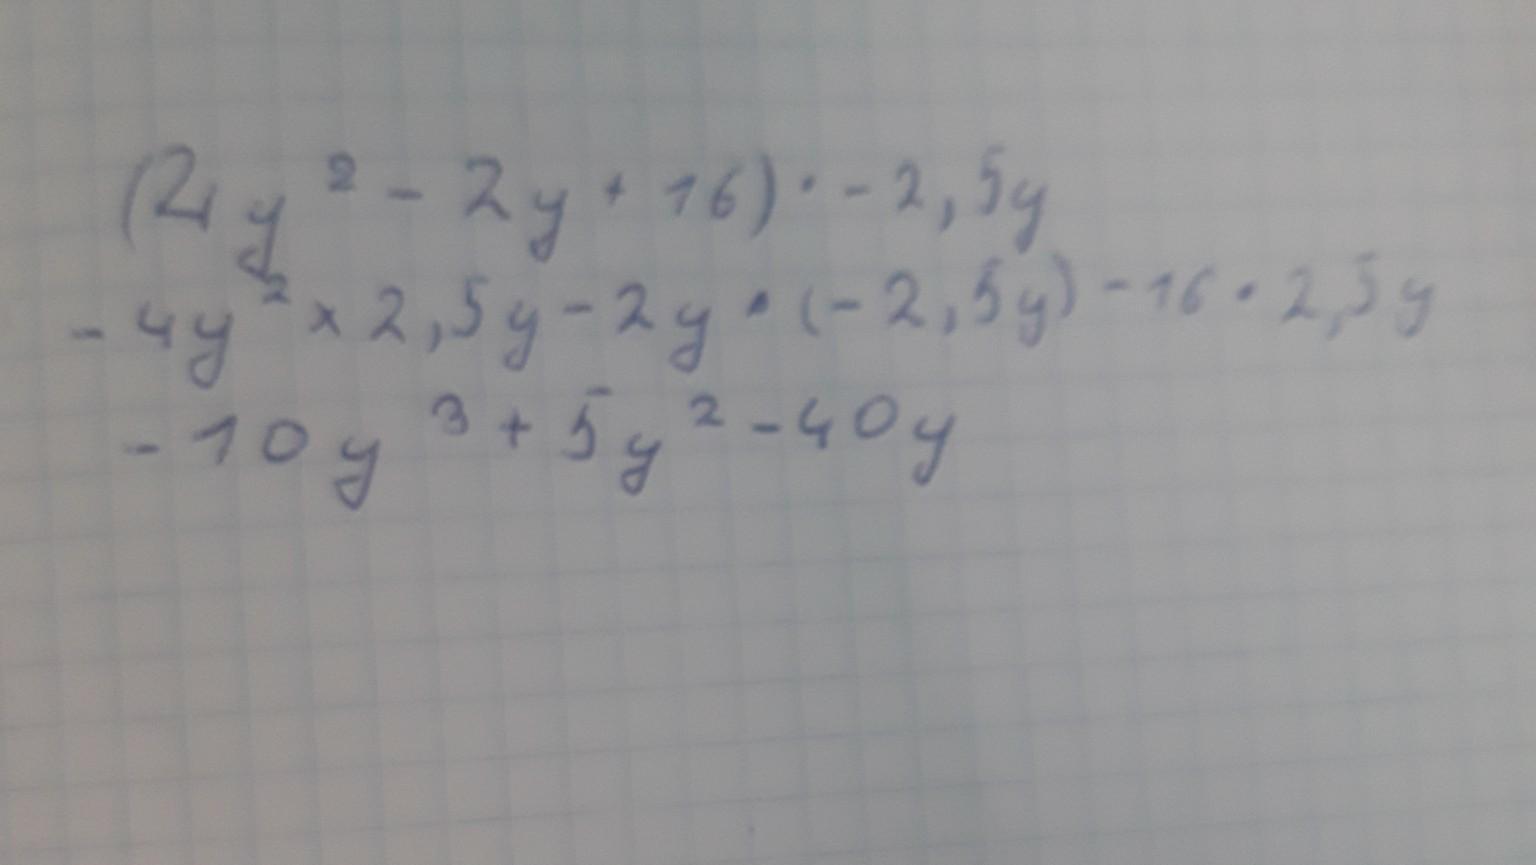 (4y² - 2y + 16) · - 2,5y
- 4y² × 2,5y - 2y · (- 2,5y) - 16 · 2,5y
- 10y³ + 5y² - 40y